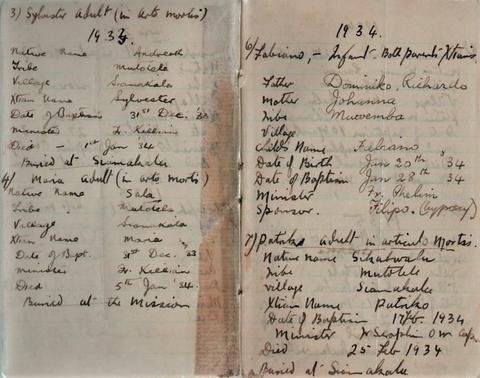 3) Sylvester adult (in arto mortis)
1933
Native Name Andreeth
Tribe Mutotela
Village Sianakala
Xtian Name Sylvester
Date of Baptism 31st Dec. '33
Minister Fr. Killian
Died - 1st Jan '34
Buried at Siamakalu
4/ Maria adult (in arto mortis)
Native Name Sala
Tribe Mutotela
Village Sianakala
Xtian Name Maria
Date of Bapt. 31st Dec. 33
Minister Fr. Killian
Died 5th Jan '34.
Buried at the Mission
1934.
6/ Fabiano, - Infant - Both parents Xtians
Father Dominiko Richardo
Mother Johanna
Tribe Muwemba
Village
Child's Name Fabiano
Date of Birth Jan 20th '34
Date of Baptism Jan 28th '34
Minister Fr. Phelim
Sponsor. Filipo.
7) Patriko adult in articulo Mortis.
Native Name Sikabwalu
Tribe Mutotele
Village Siamakalu
Xtian Name Patriko
Date of Baptism 17 Feb. 1934
Minister Fr Seraphin O M Cap.
Died 25 Feb 1934
Buried at Siamakalu